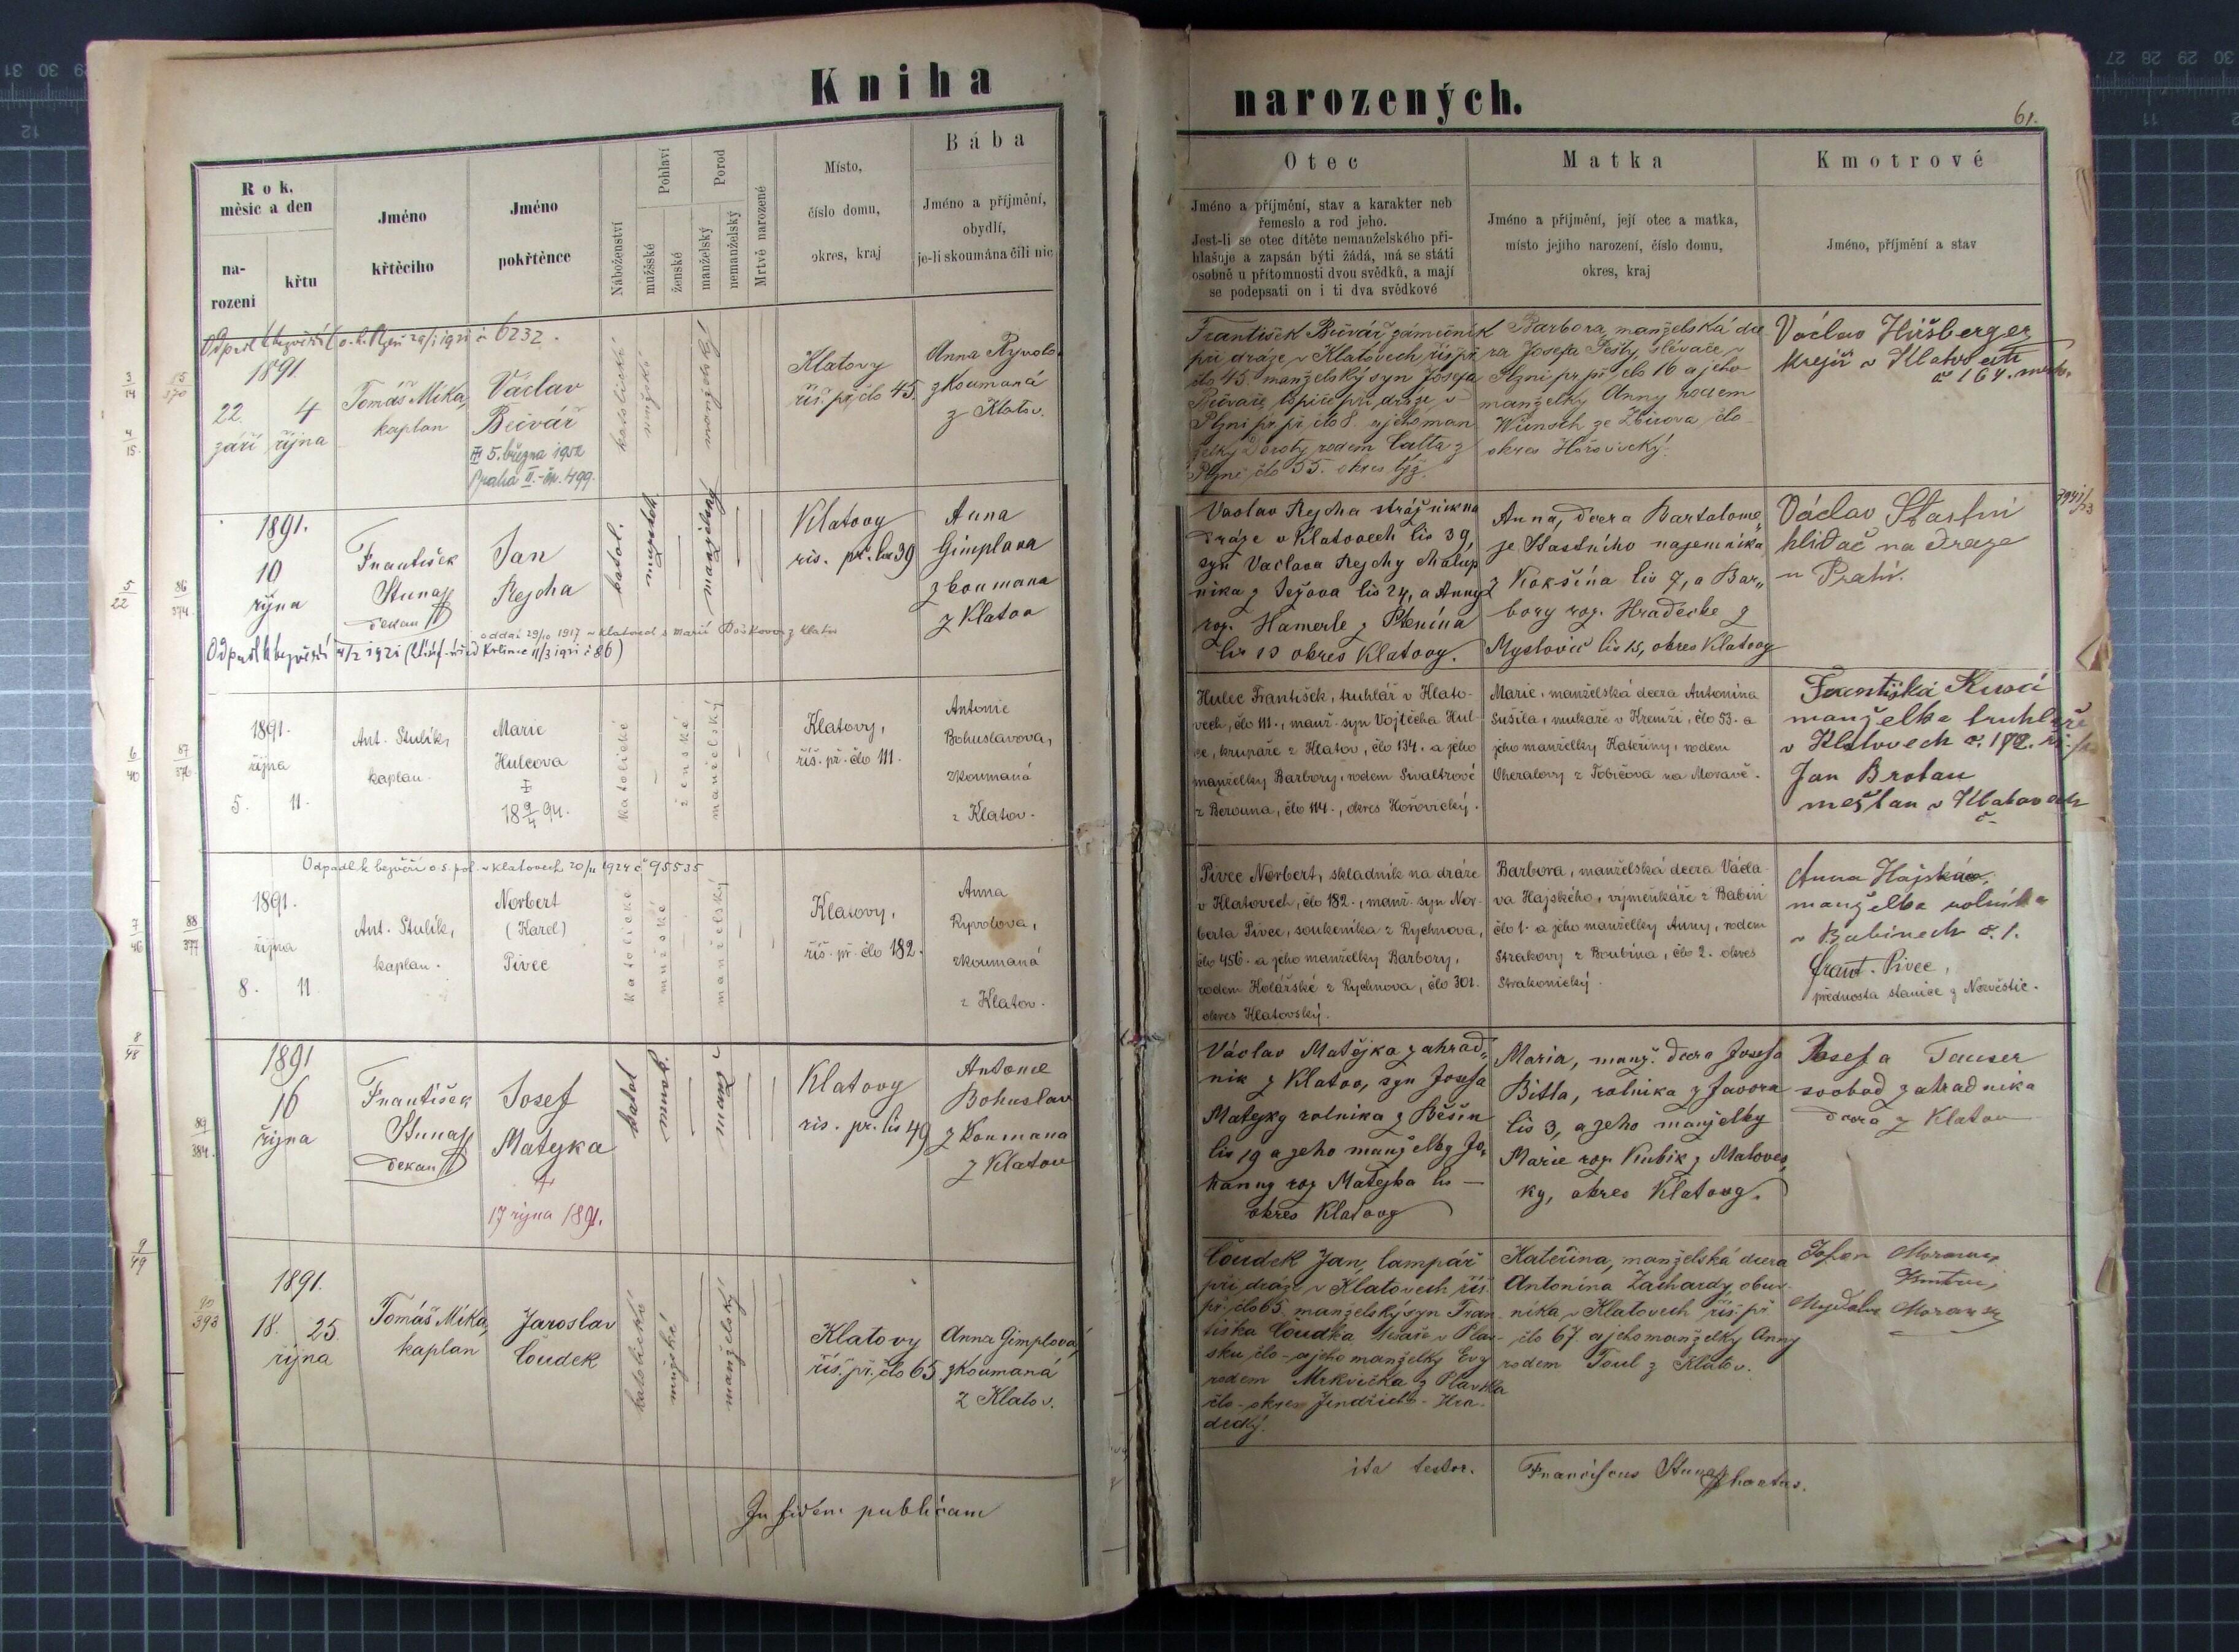 Kniha
narozených.
61.
Rok,
měsíc a den
na-
rozeni
křtu
Jméno
křtěcího
Jméno
pokřtěnce
Náboženství
Pohlaví
mužšské
ženské
Porod
manželský
nemanželský
Mrtvě narozené
Místo,
číslo domu,
okres, kraj
Bába
Jméno a příjmění,
obydlí,
je-li skoumána čili nic
Otec
Jméno a příjmění, stav a karakter neb
řemeslo a rod jeho.
Jest-li se otec dítěte nemanželského při-
hlašuje a zapsán býti žádá, má se státi
osobně u přítomnosti dvou svědků, a mají
se podepsati on i ti dva svědkové
Matka
Jméno a přijmění, její otec a matka,
místo jejího narození, číslo domu,
okres, kraj
Kmotrové
Jméno, příjmění a stav
6232.
1891.
22. 4
září října
Tomáš Míka,
kaplan
Václav
Bečvář
5. března 1952
Praha II.
499.
katolické
mužské
manželský
Klatovy
říš. př. člo 45.
Anna
zkoumaná
z Klatov.
František Bečvář zámečník
při dráze v Klatovech říš. př.
člo 45. manželský syn Josefa
Bečváře, topiče při dráze v
Plzni pr. př. člo 8. a jeho man
želky Doroty rodem Calta z
Plzně člo 55. okres týž.
Barbora, manželská dce
ra Josefa slévače v
Plzni pr. př. člo 16 a jeho
manželky Anny rodem
Wünsch ze Zbirova člo -
okres Hořovický.
Václav Hiršberger
krejčí v Klatovech
č 164.
1891.
10
října
František
Stunaß
Dekan
Jan
Rejcha
oddaí 29/10 1917 v Klatovech s Marií Boškovou z Klatov
katol.
mužskeh
manželský
Klatovy
ris. př. lis 39
Anna
Gimplova
zkoumana
z Klatov
Vaclav Rejcha strážnik na
Dráze v Klatovech lis 39,
syn Vaclava Rejchy chalup
nika z Ježova lis 24, a Anny
roz. Hamerle z Ptenína
lis 13 okres Klatovy.
Anna, Dcera Bartolome
je Stastního najemnika
z Kokšína lis 7, a Bar"
bory roz. Hradecke z
Myslovic lis 15, okres Klatovy
Václav Stastni
hlidač na Draze
v Praze.
1891.
října
5. 11.
Ant. Stulík,
kaplan.
Marie
Hulcova
18 9/4 94.
katolické
ženské
manželský
Klatovy,
říš. př. člo 111.
Antonie
Bohuslavova,
zkoumaná
z Klatov.
Hulec František, truhlář v Klato-
vech, člo 111., manž. syn Vojtěcha Hul-
ce, krupaře z Klatov, člo 134. a jeho
manželky Barbory, rodem Swaltrové
z Berouna, člo 114., okres Hořovický.
Marie, manželská dcera Antonína
Sušila, mlukaře v Kremži, člo 53. a
jeho manželky Kateřiny, rodem
Oheralovy z Tobičova na Moravě.
Františka
manželka truhláře
v Klatovech č. 172.
Jan Brotan
mešťan v Klatovech
č-
Odpadl k bezvěří o. s. pol. v Klatovech 20/11 1924 č 95535
1891.
října
8. 11.
Ant. Stulík,
kaplan.
Norbert
(Karel)
Pivec
katolické
mužské
manželský
Klatovy,
říš. př. člo 182.
Anna
Ryvolova,
zkoumaná
z Klatov.
Pivec Norbert, skladník na dráze
v Klatovech, člo 182., manž. syn Nor-
berta Pivce, soukeníka z Rychnova,
člo 456. a jeho manželky Barbory,
rodem Kolářské z Rychnova, člo 301.
okres Klatovský.
Barbora, manželská dcera Václa-
va Hajského, výměnkáře z Babin
člo 1. a jeho manželky Anny, rodem
Strakovy z Boubína, člo 2. okres
Strakonický.
Anna Hájská,
manželka rolníka
v Babinech č. 1.
Frant. Pivec,
přednosta stanice z Nezvěstic.
1891
16
října
František
Stunaß
Dekan
Josef
Matejka
17 října 1891.
katol
mužsk.
manž
Klatovy
ris. pr. lis 49
Antonie
Bohuslav
zkoumana
z Klatov
Václav Matějka zahrad"
nik z Klatov, syn Josefa
Matejky rolnika z Běšin
lis 19 a jeho manželky Jo,
hanny roz Matejka lis —
okres Klatovy
Maria, manž. Dcera Josefa
Bitla, rolnika z Javora
lis 3, a jeho manželky
Marie roz. Kubik z Maloves
ky, okres Klatovy.
Josefa Tauser
svobod zahradnika
Dcera z Klatov
1891.
18. 25.
října
Tomáš Míka,
kaplan
Jaroslav
Čoudek
katolické
mužské
manželský
Klatovy
říš. př. člo 65
Anna Gimplová,
zkoumaná
z Klatov.
Čoudek Jan, lampář
při dráze v Klatovech říš.
př. člo 65. manželský syn Fran-
tiška Čoudka tesaře v Plav-
sku člo - a jeho manželky Evy
rodem Mrkvička z Plavska
člo - okres Jindřicho-Hra-
decký.
Kateřina, manželská dcera
Antonína Zachardy, obuv-
níka v Klatovech říš. př
člo 67. a jeho manželky Anny
rodem Toul z Klatov.
In fidem publicam
ita testor.
Franciscus Stunaß